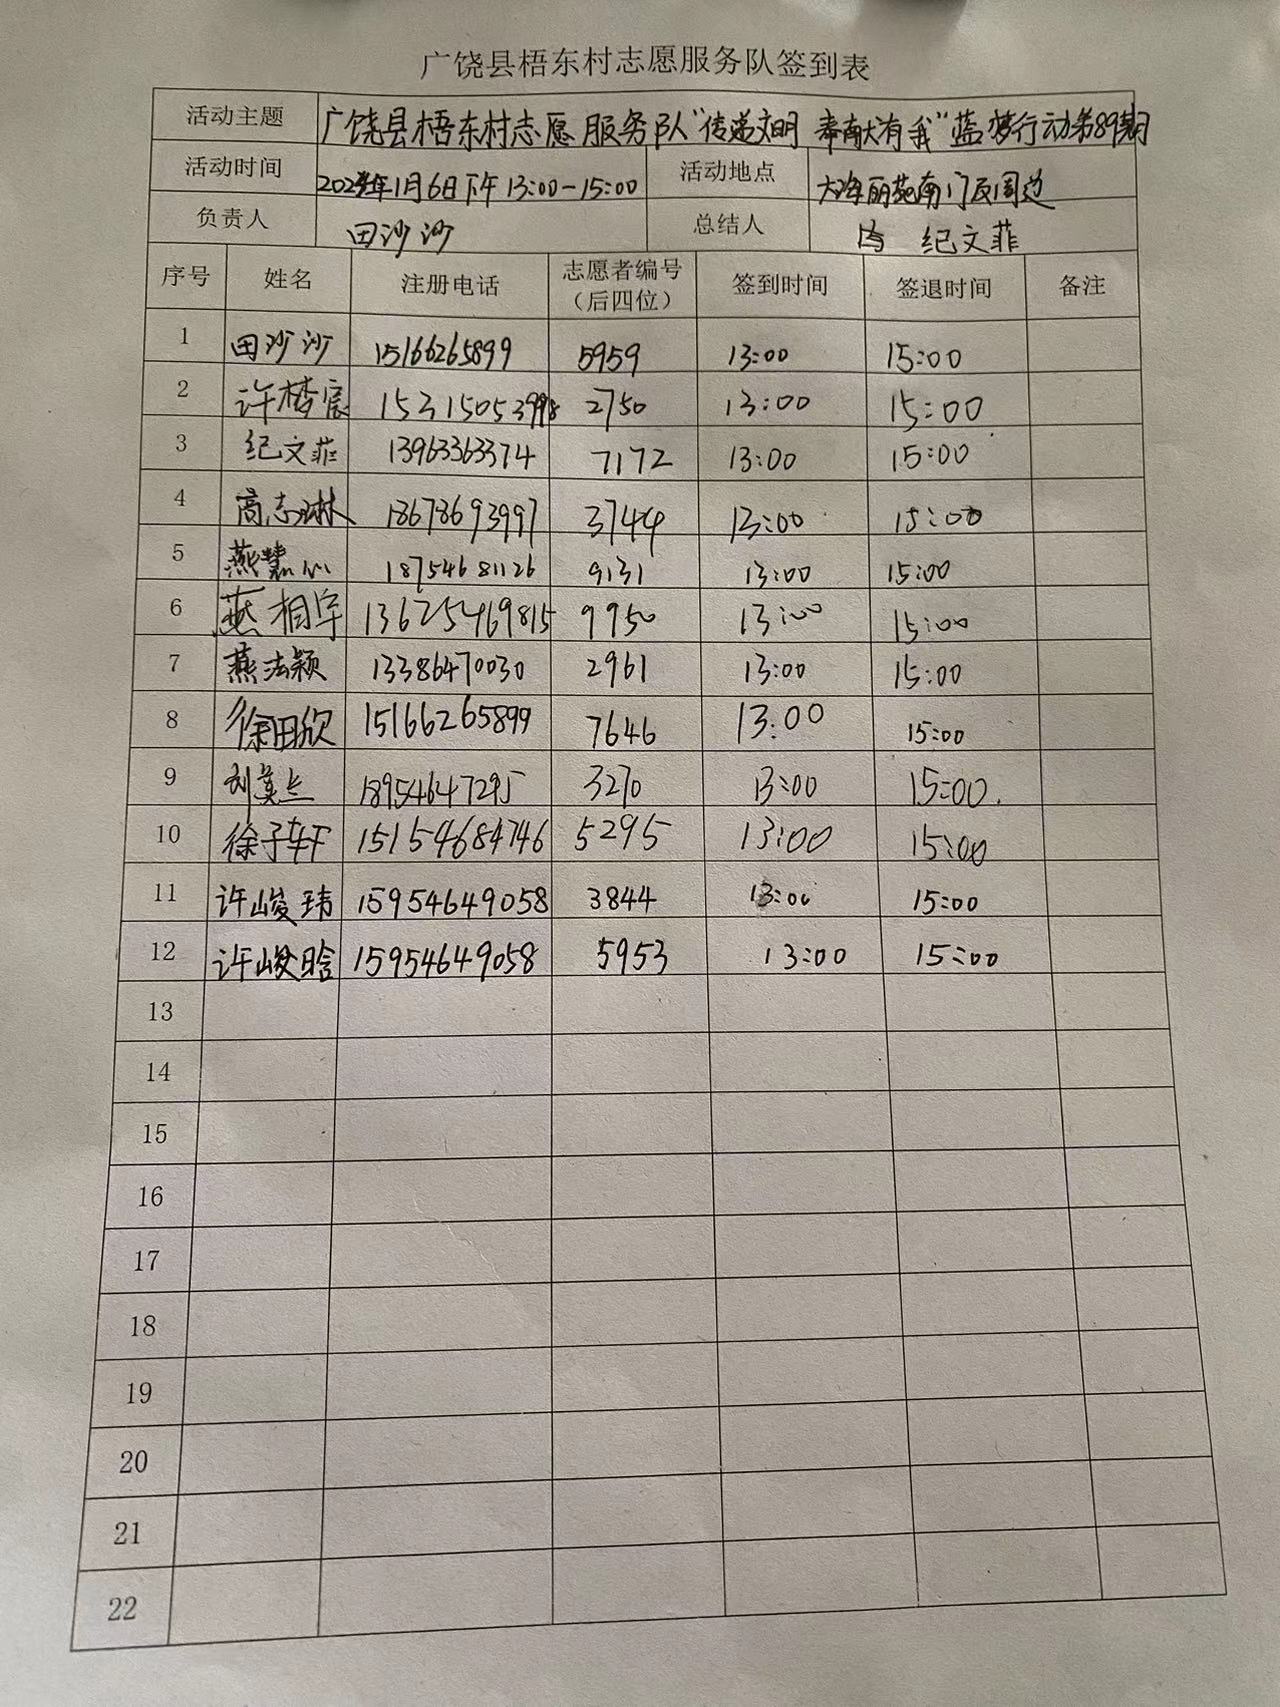 广饶县梧东村志愿服务队签到表
活动主题 广饶县梧东村志愿服务队“传递文明 奉献有我”蓝梦行动第89期
活动时间 年1月6日下午13:00-15:00 活动地点 大海丽苑南门及周边
负责人 田沙沙 总结人 纪文菲
序号 姓名 注册电话 志愿者编号（后四位） 签到时间 签退时间 备注
1 田沙沙 15166265899 5959 13:00 15:00
2 许梦宸 2750 13:00 15:00
3 纪文菲 13963363374 7172 13:00 15:00
4 高志琳 18678693997 3744 13:00 15:00
5 燕慧心 18754681126 9131 13:00 15:00
6 燕相宇 13625469815 9950 13:00 15:00
7 燕法颖 13386470030 2961 13:00 15:00
8 徐田欣 15166265899 7646 13:00 15:00
9 刘 18954647295 3270 13:00 15:00
10 徐子轩 15154684746 5295 13:00 15:00
11 许峻玮 15954649058 3844 13:00 15:00
12 许峻晗 15954649058 5953 13:00 15:00
13
14
15
16
17
18
19
20
21
22